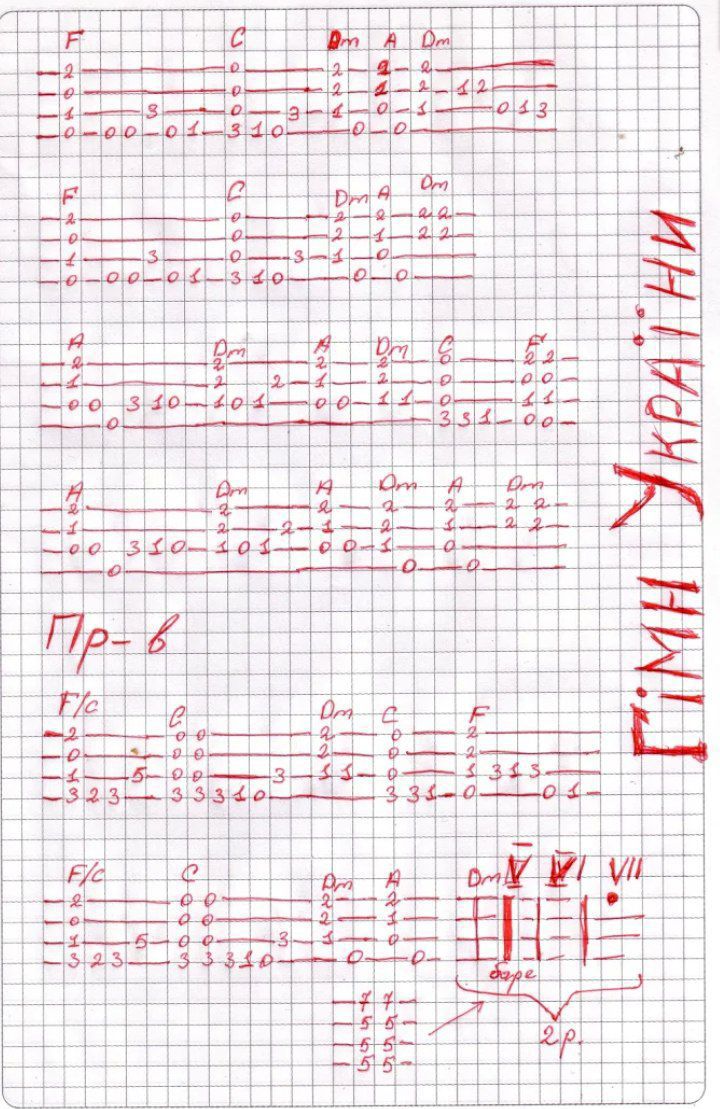 F C Dm A Dm
2 0 2 2 2
0 0 2 1 2 1 2
1 3 0 3 1 0 1 0 1 3
0 0 0 0 1 3 1 0 0 0
F C Dm A Dm
2 0 2 2 2 2
0 0 2 1 2 2
1 3 0 3 1 0
0 0 0 0 1 3 1 0 0 0
A Dm A Dm C F
2 2 2 2 0 2 2
1 2 2 1 2 0 0 0
0 0 3 1 0 1 0 1 0 0 1 1 0 1 1
0 3 3 1 0 0
A Dm A Dm A Dm
2 2 2 2 2 2 2
1 2 2 1 2 1 2 2
0 0 3 1 0 1 0 1 0 0 1 0
0 0 0
Пр-в
F/C C Dm C F
2 0 0 2 0 2
0 0 0 2 0 2
1 5 0 0 3 1 1 0 1 3 1 3
3 2 3 3 3 3 1 0 3 3 1 0 0 1
F/C C Dm A Dm V VI VII
2 0 0 2 2
0 0 0 2 1
1 5 0 0 3 1 0
3 2 3 3 3 3 1 0 0 0
баре
7 7
5 5
5 5
5 5
2 р.
Гімн України